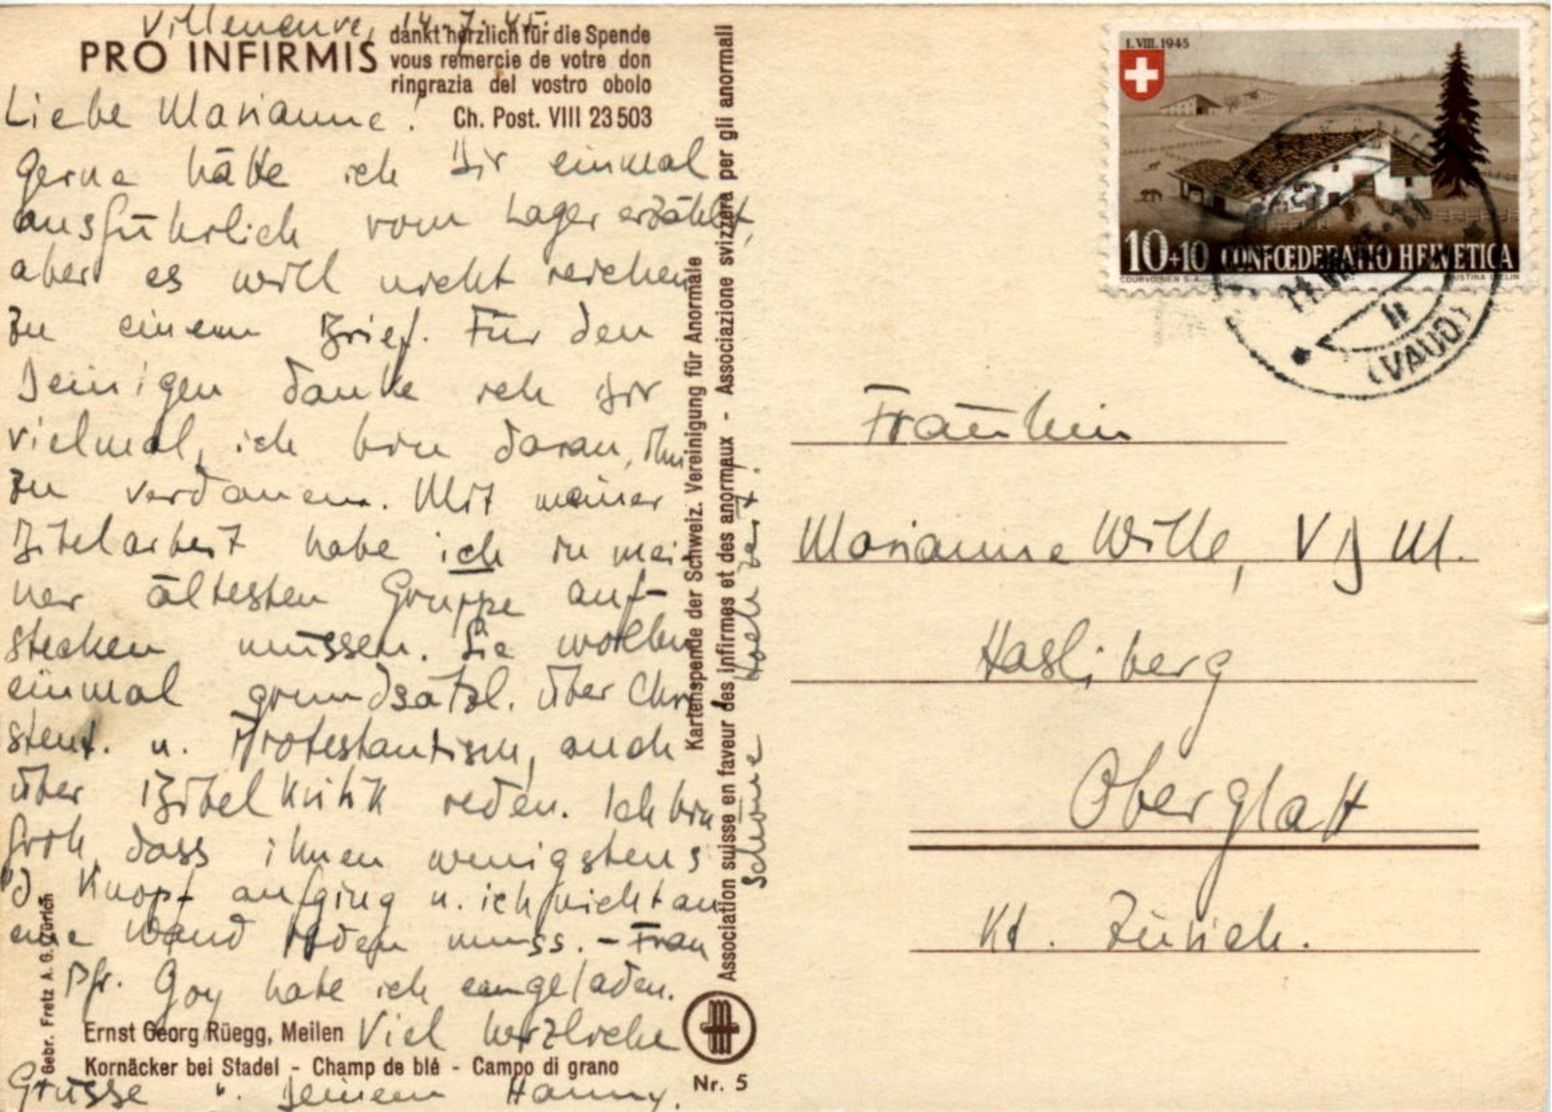 Villeneuve, 14.7.45.
PRO INFIRMIS
dankt herzlich für die Spende
vous remercie de votre don
ringrazia del vostro obolo
Ch. Post. VIII 23 503
Liebe Marianne!
Gerne hätte ich Dir einmal
ausführlich vom Lager erzählt,
aber es will nicht reichen
zu einem Brief. Für den
Deinigen danke ich Dir
vielmal, ich bin daran, ihn
zu verdauen. Mit meiner
Bibelarbeit habe ich in mei
ner ältesten Gruppe auf-
stecken müssen. Sie wollen
einmal grundsätzl. über Chri
stent. u. Protestantism, auch
über Bibelkritik reden. Ich bin
froh, dass ihnen wenigstens
d Knopf aufging u. ich nicht an
eine Wand reden muss. - Frau
Pfr. Goy habe ich eingeladen.
Viel herzliche
Grüsse Deinem Hanny.
Ernst Georg Rüegg, Meilen
Kornäcker bei Stadel - Champ de blé - Campo di grano
Gebr. Fretz A.G. Zürich
Kartenspende der Schweiz. Vereinigung für Anormale
Association suisse en faveur des infirmes et des anormaux - Associazione svizzera per gli anormali
Schöne
Nr. 5
1. VIII. 1945
10+10 CONFŒDERATIO HELVETICA
COURVOISIER S.A.
(VAUD)
Fräulein
Marianne Wille, V D M.
Hasliberg
Oberglatt
Kt. Zürich.